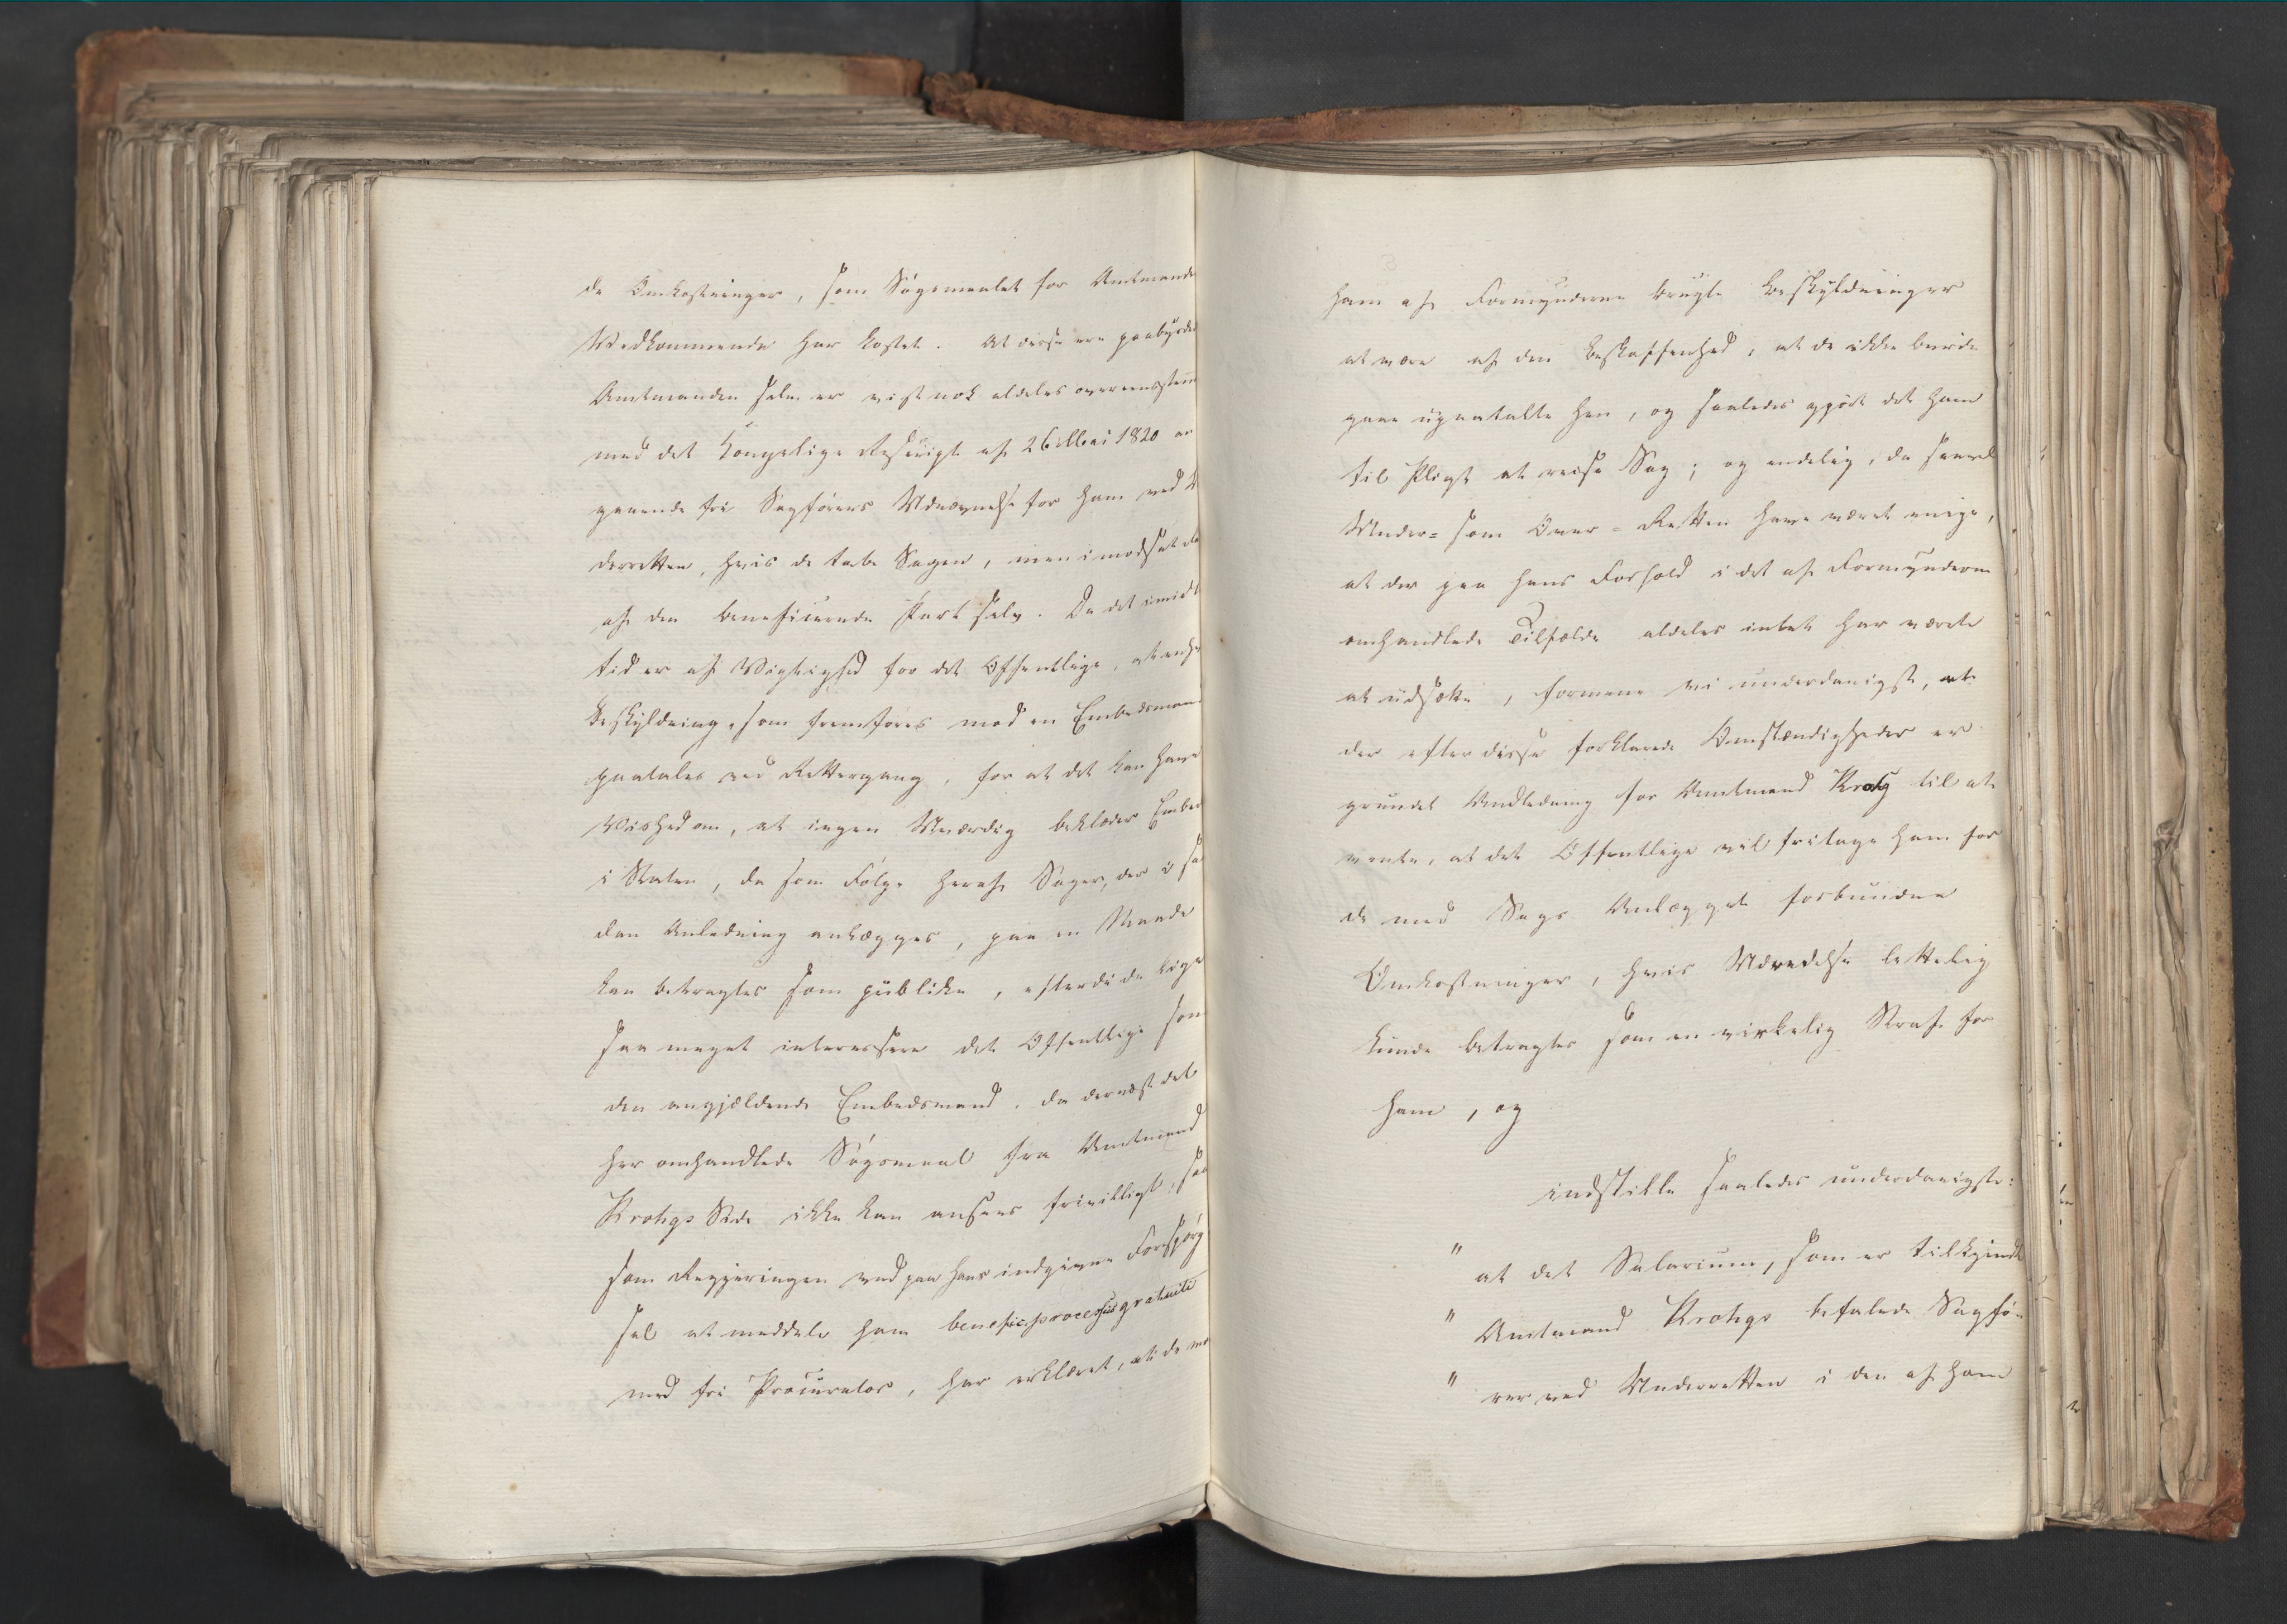 de Omkostninger, som Søgsmaalet for Amtmanden
Vedkommende har kostet. At disse ere paabyrdet
Amtmanden selv er vistnok aldeles overeensstem
med det Kongelige Rescript af 26 Mai 1820 an
gaaende fri Sagførers Udnævnelse for ham ved U
derretten, hvis de tabe Sagen, men i modsat
af den beneficerende Part selv. Da det imid
tid er af Vigtighed for det Offentlige, at enhv
Beskyldning, som fremføres mod en Embedsmand
paatales ved Rettergang, for at det kan have
Vished om, at ingen Uværdig beklæder Embed
i Staten, da som Følge heraf Sager, der i saa
dan Anledning anlægges, paa en Maade
kan betragtes som publike, efterdi de lige
saa meget interessere det Offentlige som
den angjældende Embedsmand, da dernæst det
her omhandlede Søgsmaal fra Amtmand
Krohgs Side ikke kan ansees frivilligt, saa
som Regjeringen ved paa hans indgivne Forespørg
sel at meddele ham benefic: processus gratuiti
med fri Procurator, har erklæret, at de mo
ham af Formynderne brugte Beskyldninger
at være af den Beskaffenhed, at de ikke burde
gaae upaatalte hen, og saaledes gjort det ham
til Pligt at reise Sag; og endelig, da saavel
Under= som Over=Retten have været enige,
at der paa hans Forhold i det af Formynderne
omhandlede Tilfælde aldeles intet har været
at udsætte, formene vi underdanigst, at
der efter disse forklarede Omstændigheder er
grundet Anledning for Amtmand Krohg til at
vente, at det Offentlige vil fritage ham for
de med Sags Anlægget forbundne
Omkostninger, hvis Udredelse lettelig
kunde betragtes som en virkelig Straf for
ham, og
indstille saaledes underdanigst:
" at det Salarium, som er tilkjendt
" Amtmand Krohgs befalede Sagfø=
" rer ved Underretten i den af ham